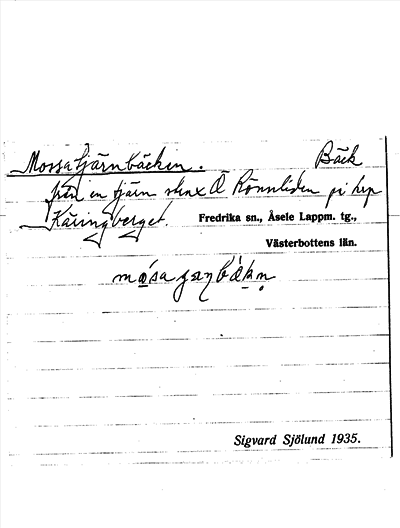 Mossatjärnbäcken. Bäck
från en tjärn strax Ö Rönnliden på krp
Käringberget. Fredrika sn., Åsele Lappm. tg.,
Västerbottens län.
Sigvard Sjölund 1935.